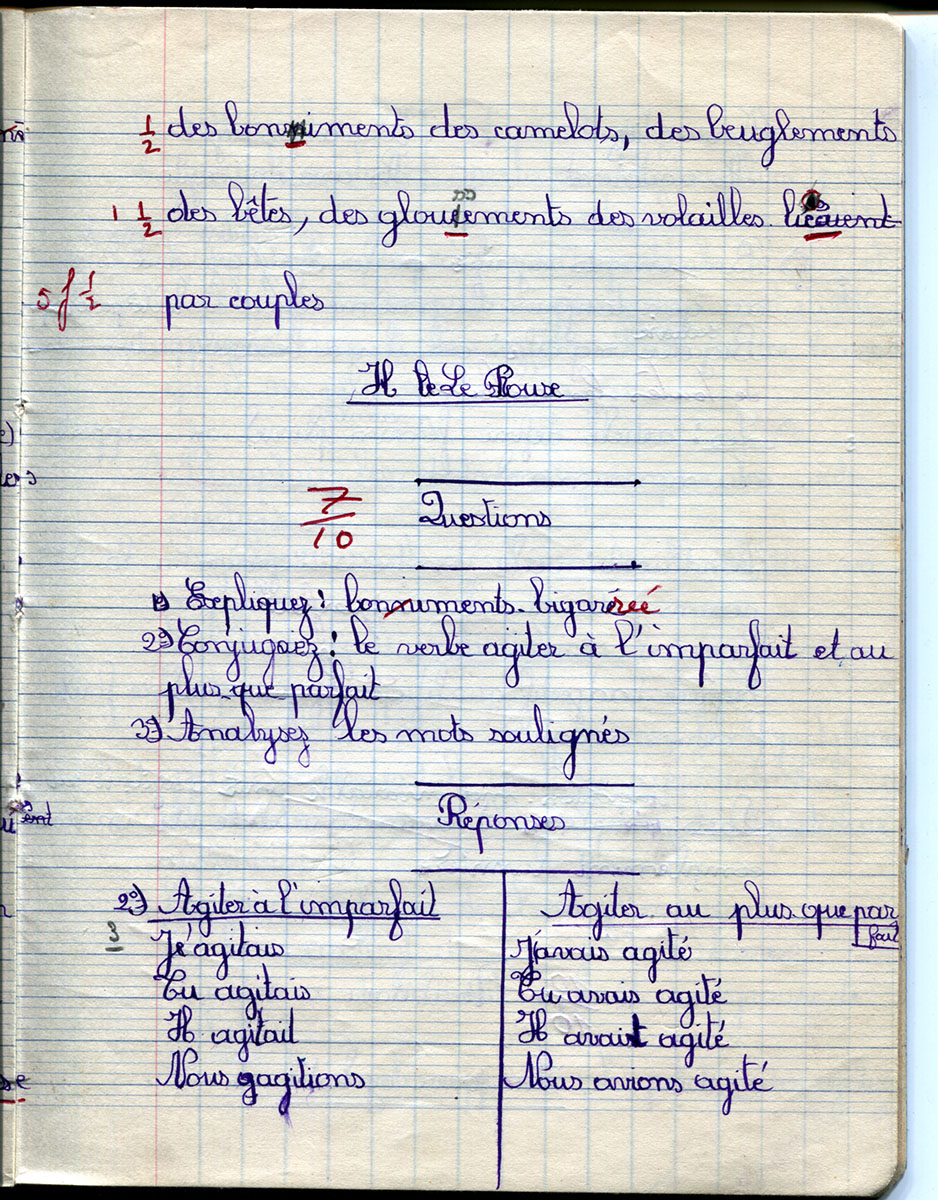 1/2 des boniments des camelots, des beuglements
1 1/2 des bêtes, des gloussements des volailles. liés
5 f 1/2 par couples
H Le Roux
7/10 Questions
1°) Expliquez : boniments. bigarréé
2°) Conjuguez : le verbe agiter à l'imparfait et au
plus-que parfait
3°) Analysez les mots soulignés
Réponses
2°) Agiter à l'imparfait
3 J'agitais
Tu agitais
Il agitait
Nous agitions
Agiter au plus que par
fait
J'avais agité
Tu avais agité
Il avait agité
Nous avions agité